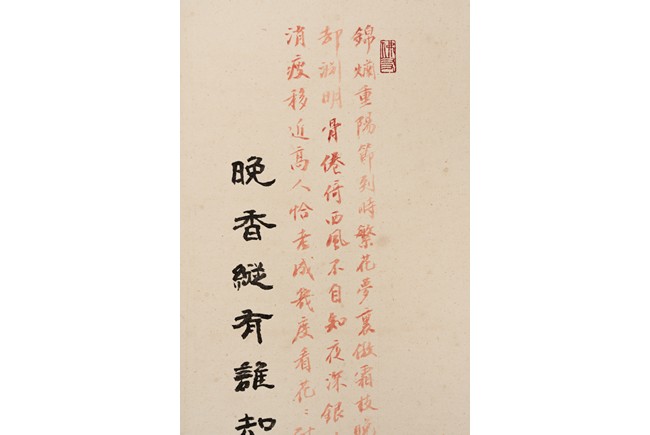 錦爛重陽節到時繁花夢裏傲霜枝晚
却渕明骨倦倚西風不自知夜深銀
消瘦移近高人恰老成幾度看花〻
晚香縱有誰知